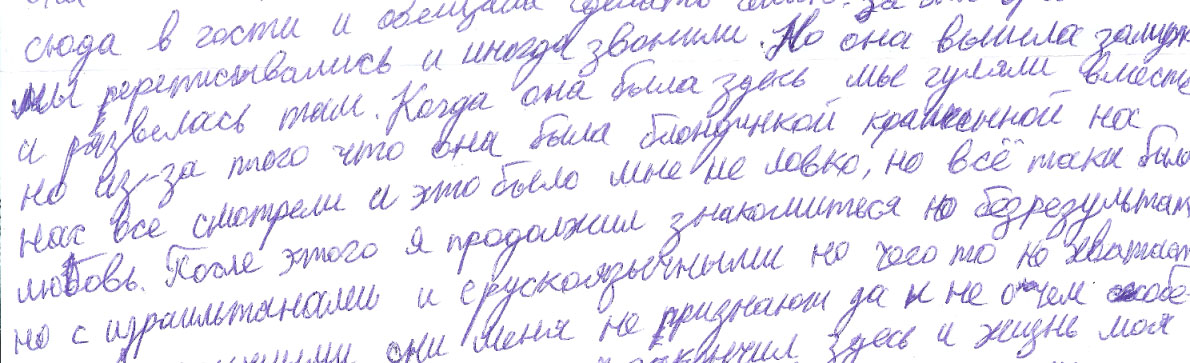 сюда в гости и обещала сделать
мы переписывались и иногда звонили. Но она вышла замуж
и развелась там. Когда она была здесь мы гуляли вместе
но из-за того что она была блондинкой крашенной на
нас все смотрели и это было мне не ловко, но всё таки была
любовь. После этого я продолжил знакомиться но безрезультат
но с израильтянами и с рускоязычными но чего то не хватает
они меня не признают да и не о чем особе
здесь и жизнь моя